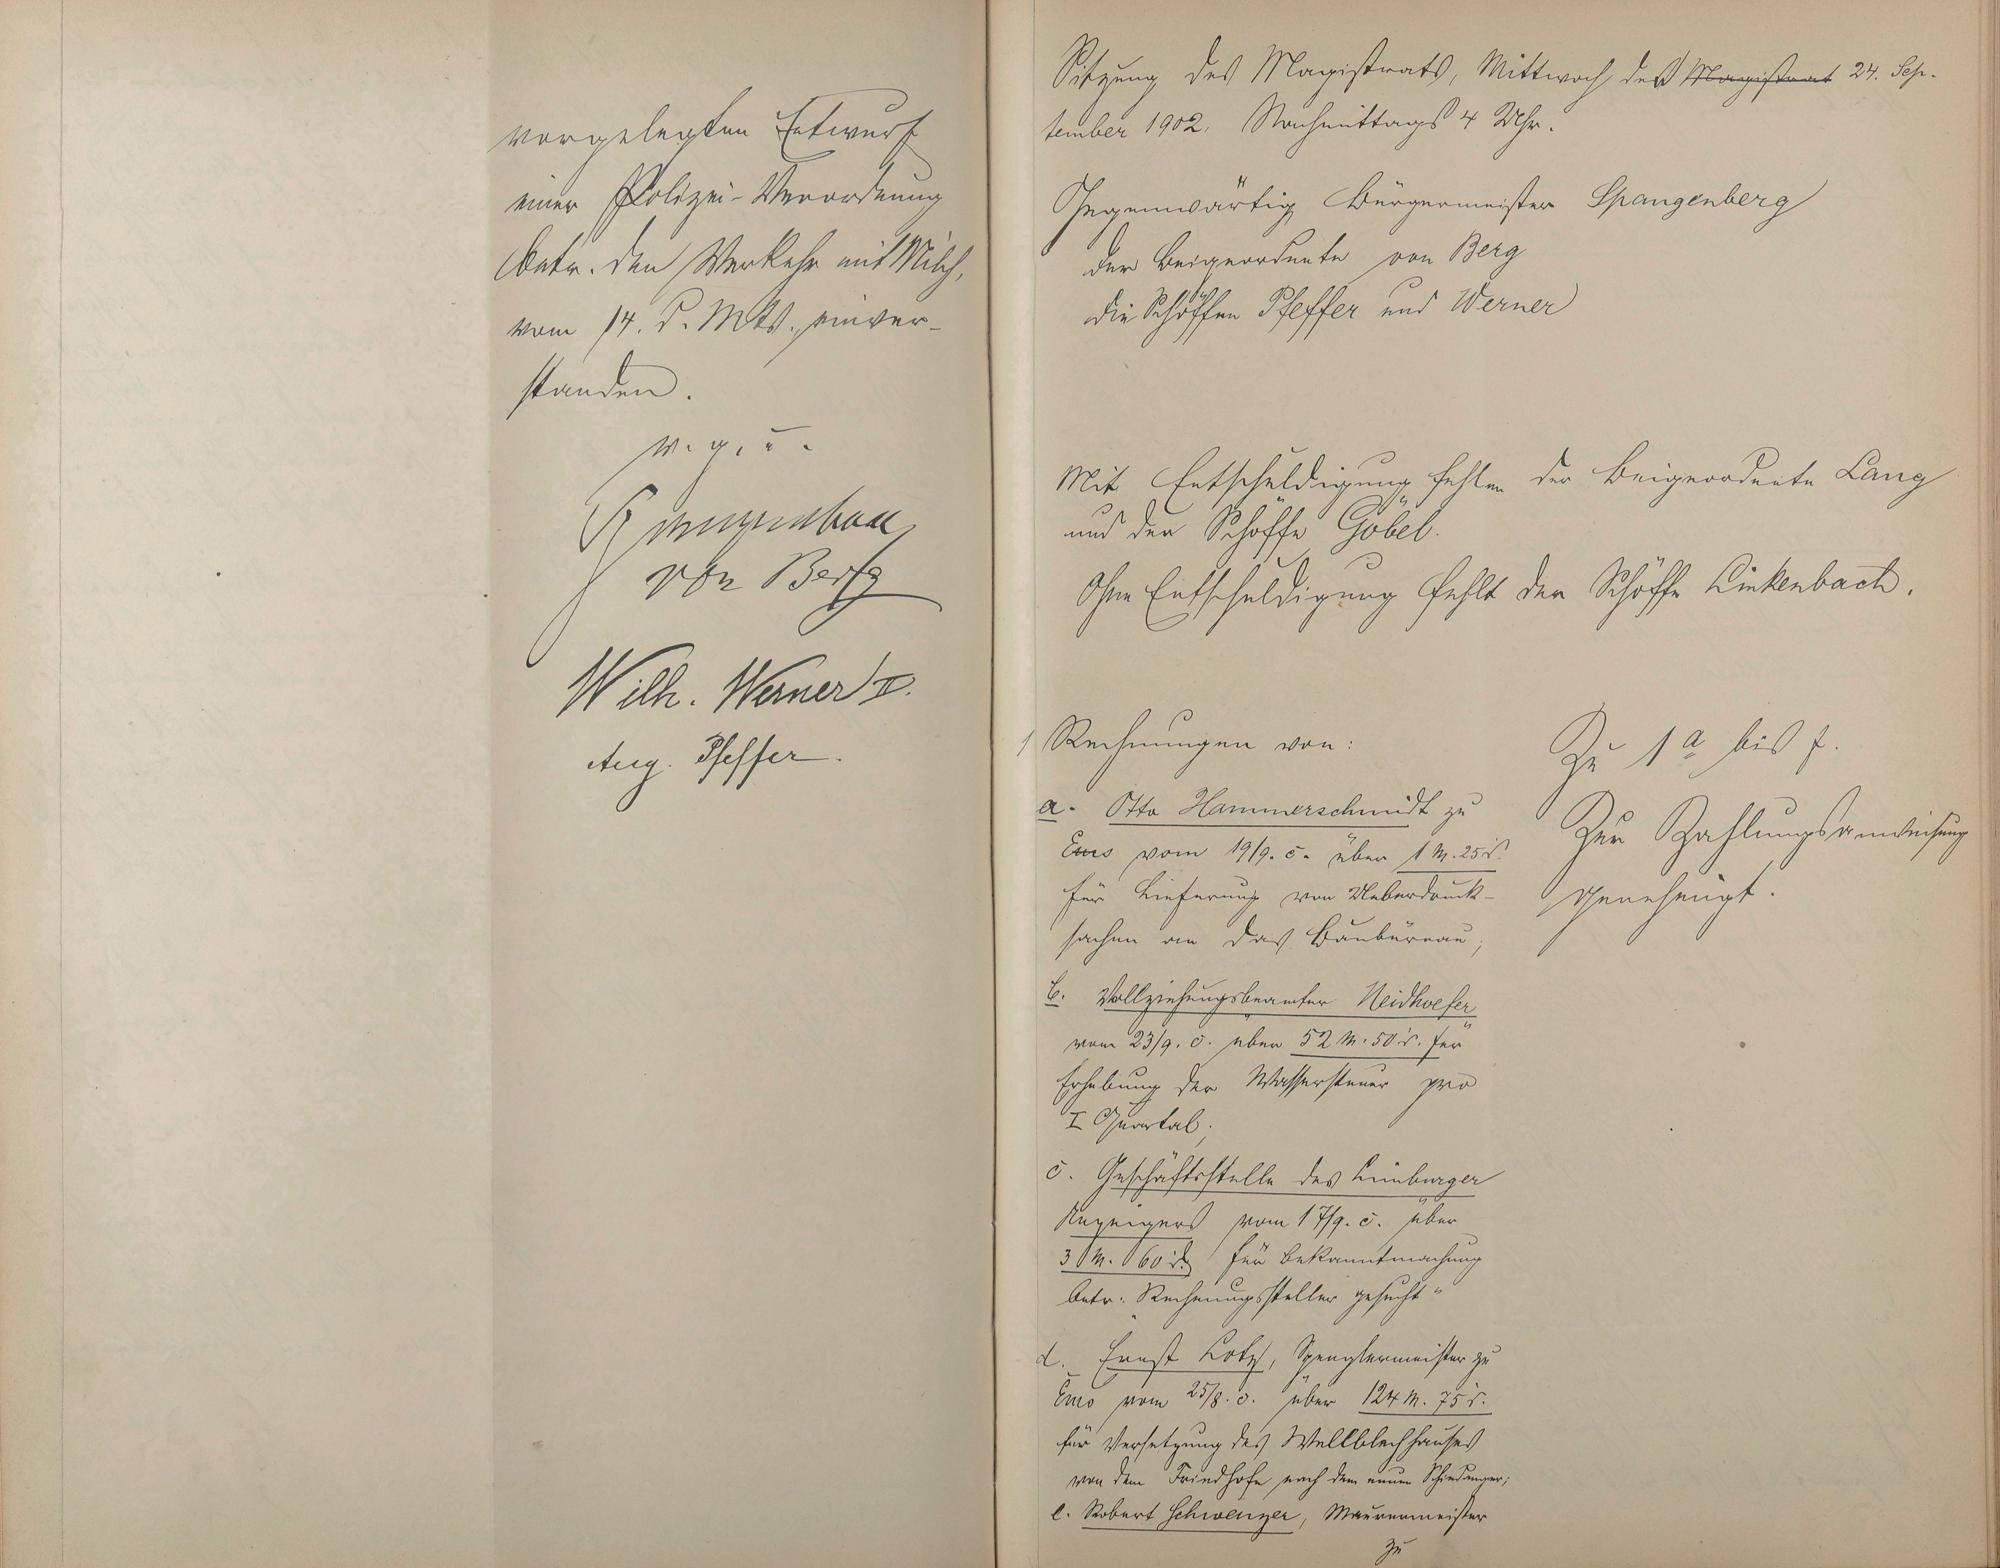 vorgelegten Entwurf
einer Polizei-Verordnung
betr. den Verkehr mit Milch,
vom 14. d. Mts., einver-
standen.
v. g. u.
von Berg
Wilh. Werner II.
Aug. Pfeffer.
Sitzung des Magistrats, Mittwoch, des Magistrat 24. Sep-
tember 1902. Nachmittags 4 Uhr.
Gegenwärtig Bürgermeister Spangenberg
der Beigeordnete von Berg
die Schöffen Pfeffer und Werner
Mit Entschuldigung fehlen der Beigeordnete Lang
und der Schöffe Göbel.
Ohne Entschuldigung fehlt der Schöffe Linkenbach.
1 Rechnungen von:
a. Otto Hammerschmidt zu
Ems vom 19/9. c. über 1 M. 25 d.
für Lieferung von Ueberdruck-
sachen an das Baubüreau;
b. Vollziehungsbeamter Neidhoefer
vom 23/9. c. über 52 M. 50 d. für
Erhebung der Wassersteuer pro
I Quartal;
c. Geschäftsstelle des Limburger
Anzeigers vom 17/9. c. über
3 M. 60 d. für Bekanntmachung
betr. "Rechnungssteller gesucht"
d. Ernst Lotz, Spenglermeister zu
Ems vom 25/8. c. über 124 M. 75 d.
für Versetzung des Wellblechhauses
von dem Friedhofe nach dem neuen
e. Robert Schwenzer, Maurermeister
zu
Zu 1 a bis f.
Zur Zahlungsanweisung
genehmigt.